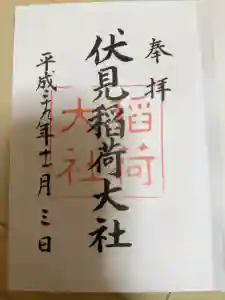 奉拝
伏見稲荷大社
稲荷
大社
平成二十九年十一月三日